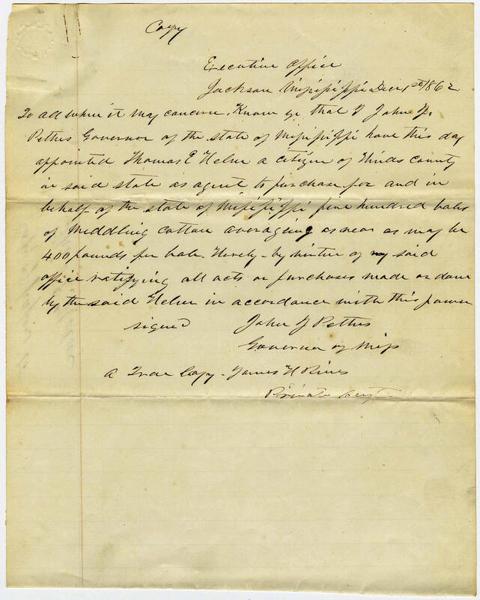 Copy
Executive Office
Jackson Mississippi Dec 1st 1862
To all whom it may concern, Know ye, that I John J.
Pettus Governor of the state of Mississippi have this day
appointed Thomas E Helm a citizen of Hinds County
in said state as agent to purchase for and in
behalf of the state of Mississippi five hundred bales
of Middling cotton averaging as near as may be
400 pounds per bale. Hereby by virtue of my said
office ratifying all acts or purchases made or done
by the said Helm in accordance with this power
signed John J Pettus
Governor of Miss
A True Copy - James H Rives
Private Secty